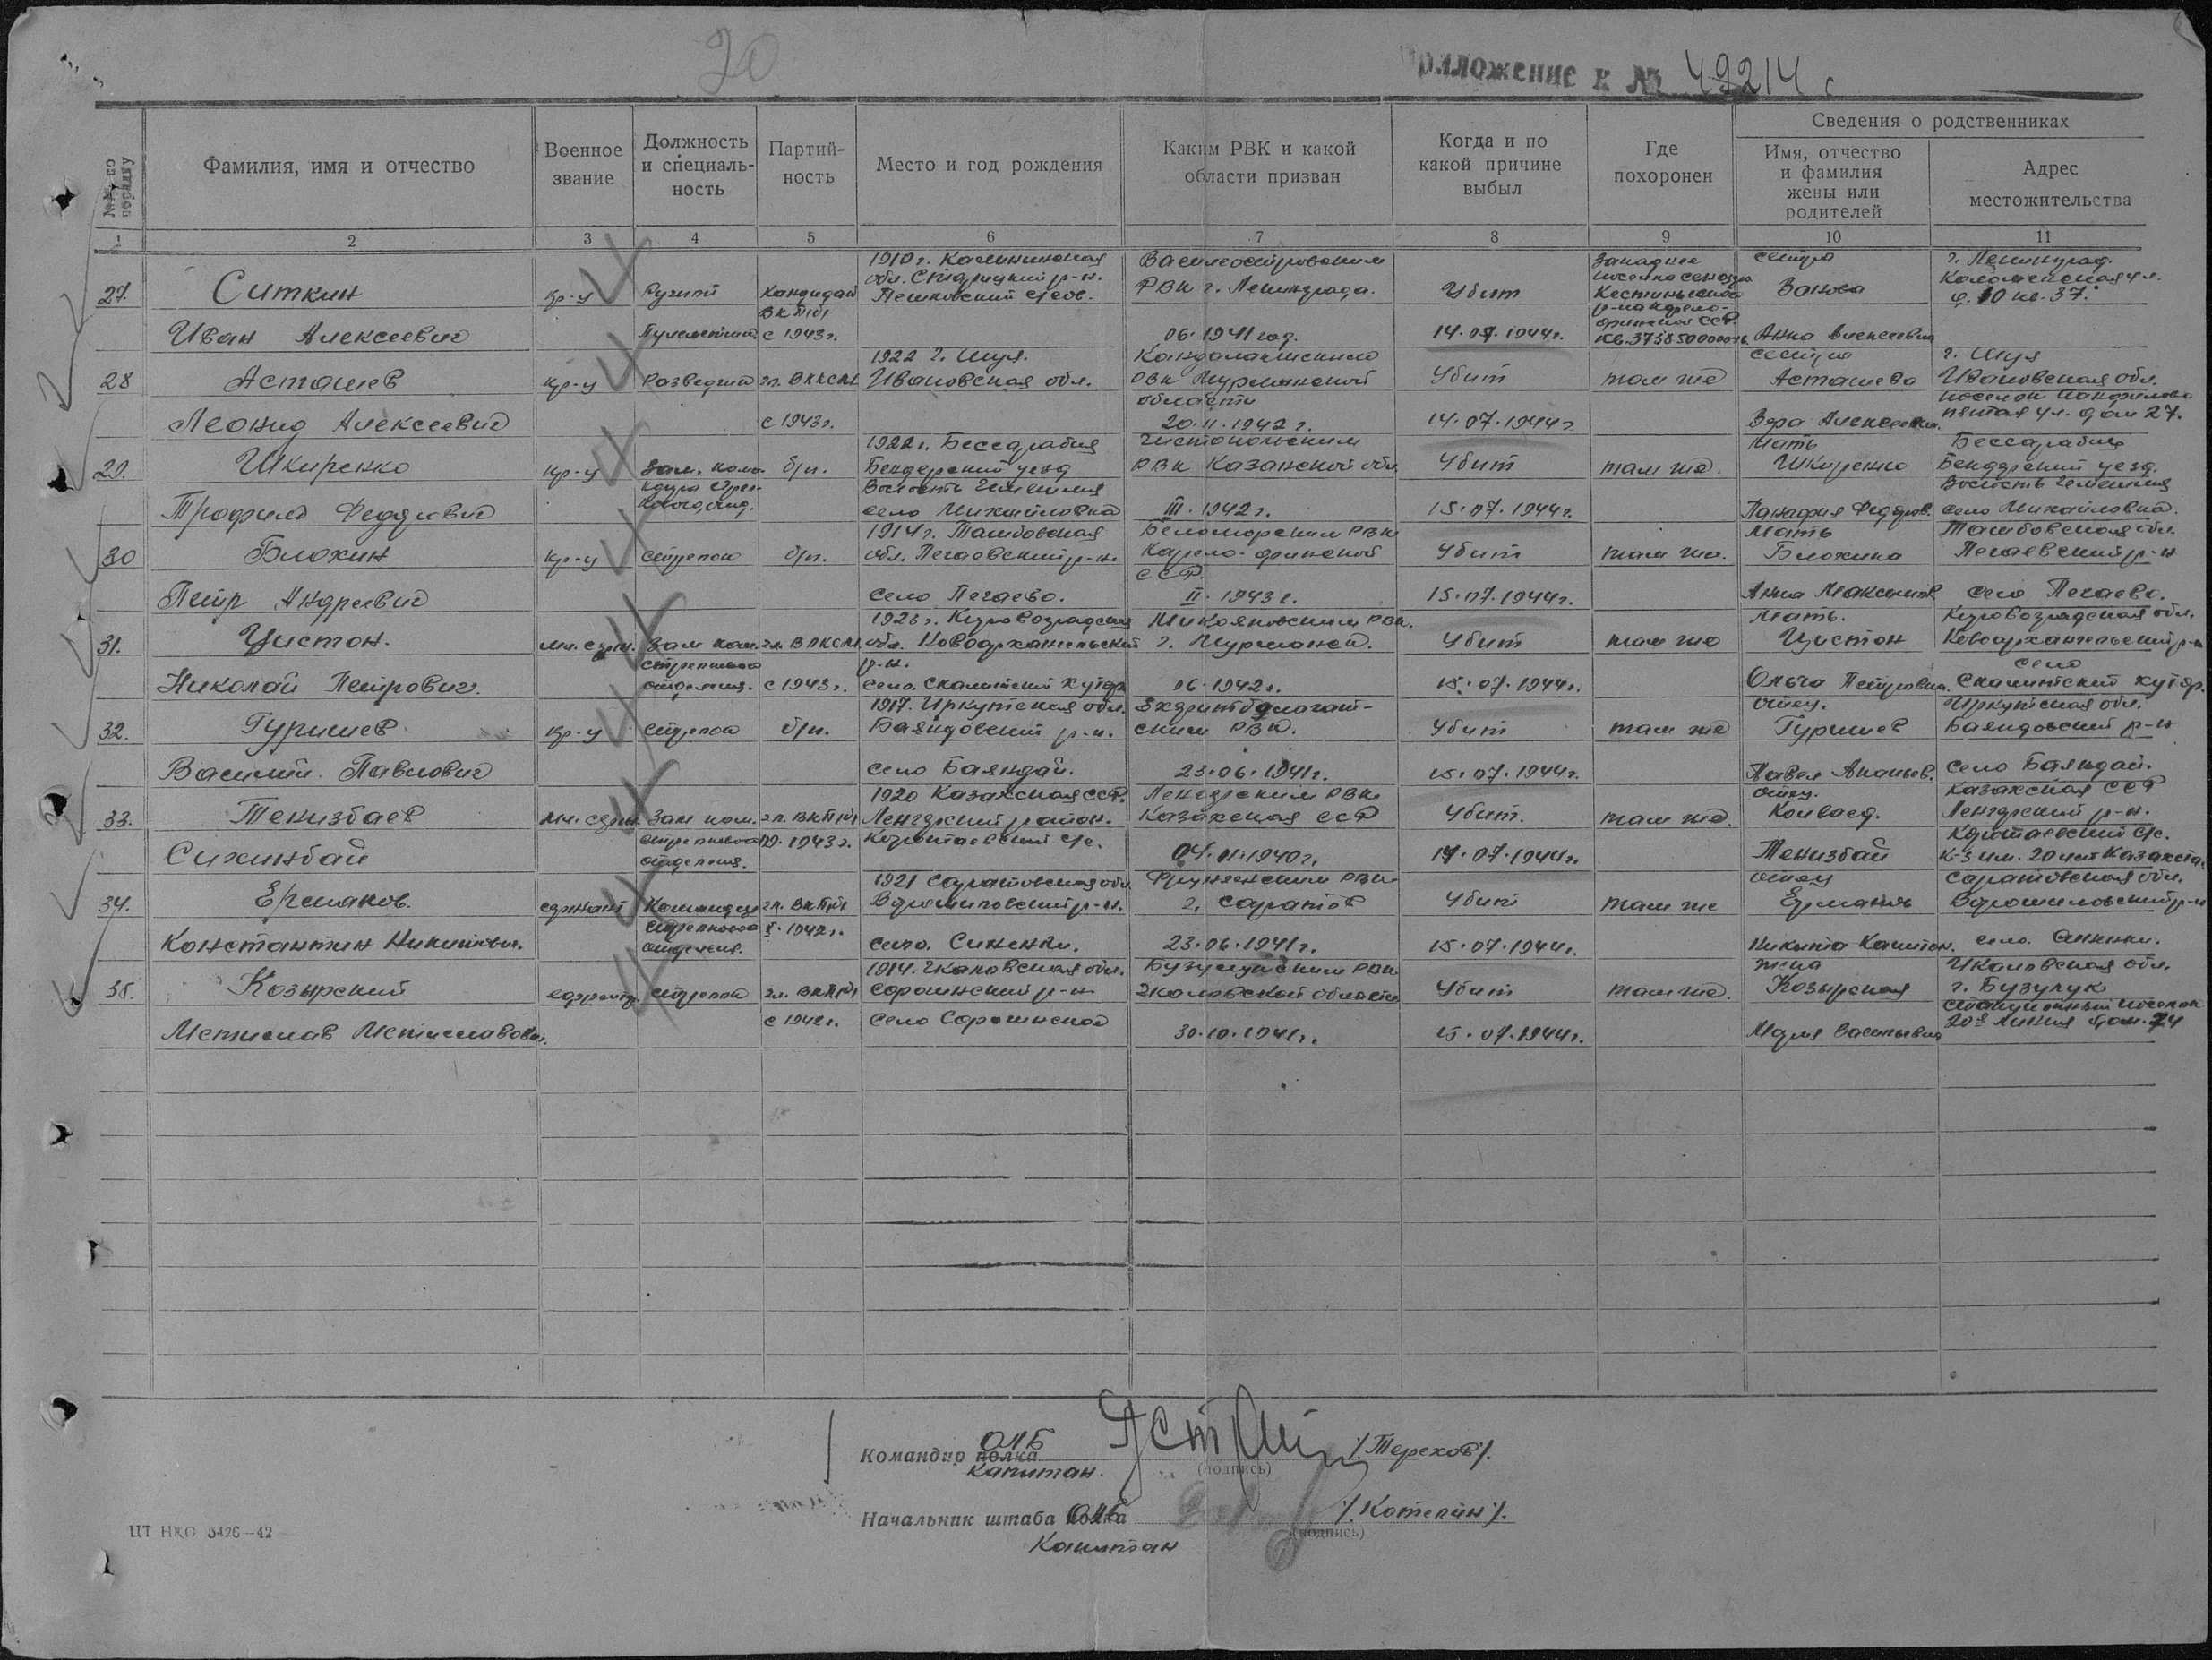 20
Приложение к № 49214 с
№№ по порядку
Фамилия, имя и отчество
Военное звание
Должность и специаль-ность
Партий-ность
Место и год рождения
Каким РВК и какой области призван
Когда и по какой причине выбыл
Где похоронен
Сведения о родственниках
Имя, отчество и фамилия жены или родителей
Адрес местожительства
1 2 3 4 5 6 7 8 9 10 11
27. Ситкин
Иван Алексеевич
кр-ц
Ручной
Пулеметчик
Кандидат
ВКП(б)
с 1943 г.
1910 г. Калининская
обл. Старицкий р-н.
Василеостровским
РВК г. Ленинграда.
06. 1941 год.
Убит
14.07.1944 г.
Западнее
сестра
Анна Алексеевна
г. Ленинград.
Коломенская ул.
д. 10 кв. 37.
28 Асташев
Леонид Алексеевич
кр-ц
Разведчик
чл. ВЛКСМ
с 1943 г.
1922 г. Шуя.
Ивановская обл.
Кандалакшским
РВК Мурманской
области
20.11.1942 г.
Убит
14.07.1944 г.
там же
сестра
Асташева
Вера Алексеевна.
г. Шуя
Ивановская обл.
пятая ул. дом 27.
29. Шкиренко
Трофим Федорович
кр-ц
Зам. коман-
б/п.
1922 г. Бессарабия
Бендерский уезд
село Михайловка
Чистопольским
РВК Казанской обл.
III. 1942 г.
Убит
15.07.1944 г.
там же.
мать
Шкиренко
Бессарабия
Бендерский уезд.
село Михайловка.
30 Блохин
Петр Андреевич
кр-ц
стрелок
б/п.
1914 г. Тамбовская
обл. Пичаевский р-н.
село Пичаево.
Беломорским РВК
Карело-финской
ССР.
II. 1943 г.
Убит
15.07.1944 г.
там же.
Мать
Блохина
Анна Максимов.
Тамбовская обл.
Пичаевский р-н
село Пичаево.
31. Цистон.
Николай Петрович.
мл. серж.
Зам ком.
стрелкового
отделения.
чл. ВЛКСМ.
с 1943 г.
1923 г. Кировоградская
обл. Новоархангельский
р-н.
село. Скалитский хутор
Микояновским РВК.
г. Мурманск.
06. 1942 г.
Убит
15.07.1944 г.
там же
Мать.
Цистон
Ольга Петровна.
Кировоградская обл.
Новоархангельский р-н
село
Скалитский хутор.
32. Гуришев
Василий Павлович
кр-ц
стрелок
б/п.
1917. Иркутская обл.
Баяндовский р-н.
село Баяндай.
Эхиритбулагат-
ским РВК.
23.06.1941 г.
Убит
15.07.1944 г.
там же
отец.
Гуришев
Павел Ананьев.
Иркутская обл.
Баяндовский р-н
село Баяндай.
33. Тенизбаев
Сихинбай
мл. серж.
Зам ком.
стрелкового
отделения.
чл. ВКП(б)
1943 г.
1920 Казахская ССР.
Ленгерский район.
Ленгерским РВК
Казахская ССР
04.11.1940 г.
Убит.
17.07.1944 г.
там же.
отец.
Тенизбай
Казахская ССР
Ленгерский р-н.
к-з им. 20 лет Казахста.
34. Ермаков.
Константин Никитович.
сержант
Командир
стрелкового
отделения.
чл. ВКП(б)
1942 г.
1921 Саратовская обл.
Ворошиловский р-н.
село. Синенки.
Фрунзенским РВК
г. Саратов
23.06.1941 г.
Убит
15.07.1944 г.
там же
отец
Ермаков
Никита Капитон.
Саратовская обл.
Ворошиловский р-н
село. Синенки.
35. Козырский
Мстислав Мстиславович.
стрелок
чл. ВКП(б)
с 1942 г.
1914. Чкаловская обл.
Сорочинский р-н
село Сорочинское
Бузулукским РВК
Чкаловской области
30.10.1941 г.
Убит
15.07.1944 г.
там же.
жена
Козырская
Мария Васильевна
Чкаловская обл.
г. Бузулук
20я линия дом. 74
Командир полка ОЛБ
Капитан.
(подпись)
/Терехов/.
Начальник штаба полка ОЛБ
Капитан
(подпись)
/Котелин/.
ЦТ НКО 5426—42